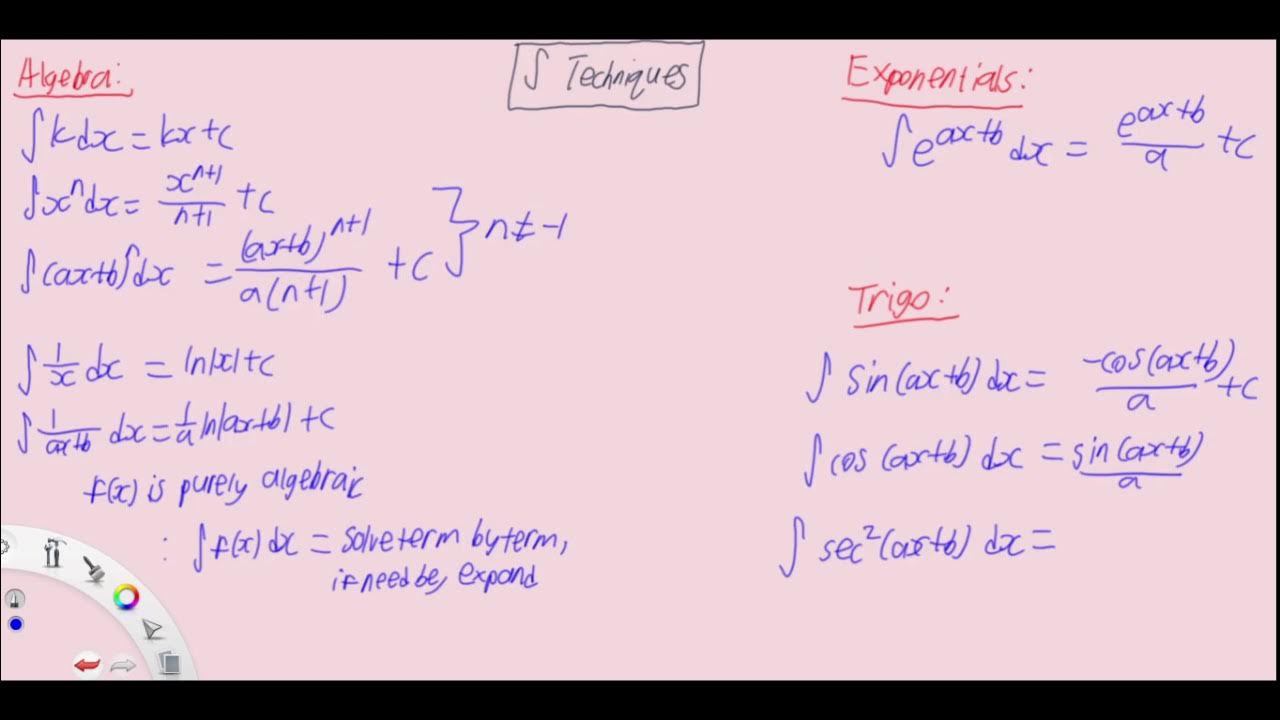 ∫ Techniques
Algebra:
∫k dx = kx+c
∫xⁿ dx = xⁿ⁺¹/n+1 + c
∫(ax+b)ⁿ dx = (ax+b)ⁿ⁺¹/a(n+1) + c } n≠-1
∫1/x dx = ln|x|+c
∫1/ax+b dx = 1/a ln|ax+b|+c
f(x) is purely algebraic
: ∫f(x) dx = solve term by term,
if need be, expand
Exponentials:
∫e^(ax+b) dx = e^(ax+b)/a + c
Trigo:
∫sin(ax+b) dx = -cos(ax+b)/a + c
∫cos(ax+b) dx = sin(ax+b)/a
∫sec²(ax+b) dx =